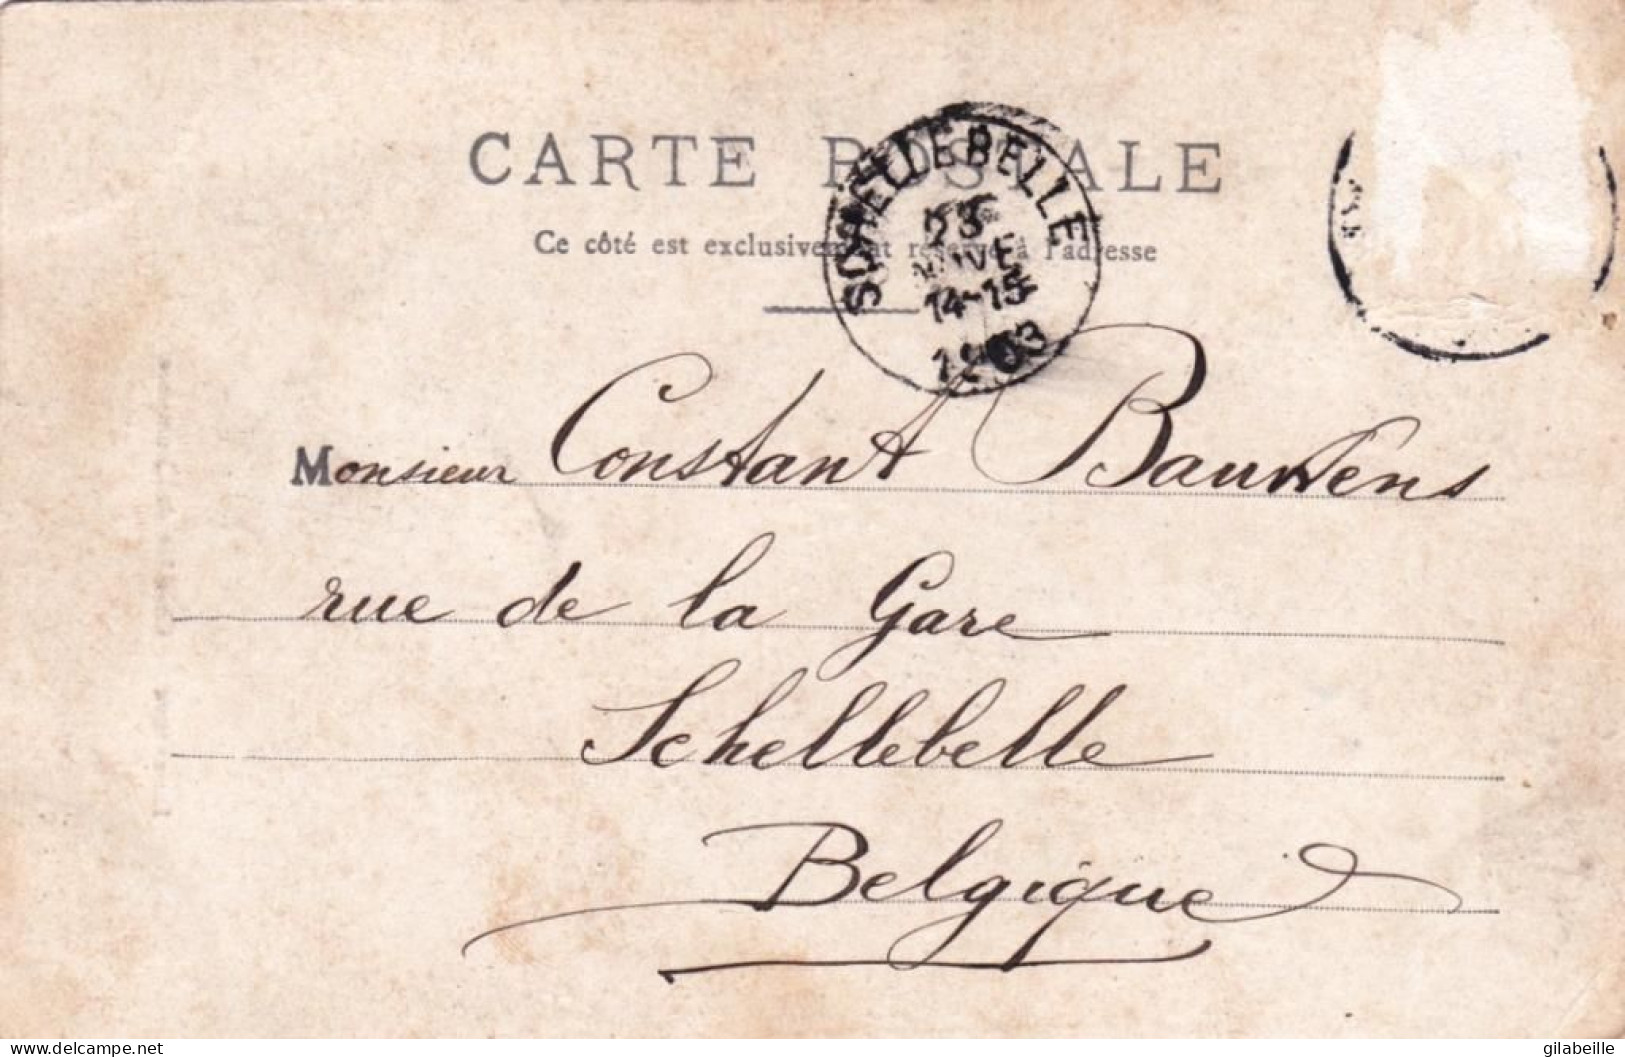 CARTE POSTALE
Ce côté est exclusivement réservé à l'adresse
SCHELLEBELLE
23
NOVE
14-15
1903
Monsieur Constant Bauwens
rue de la Gare
Schellebelle
Belgique
delcampe.net
gilabeille